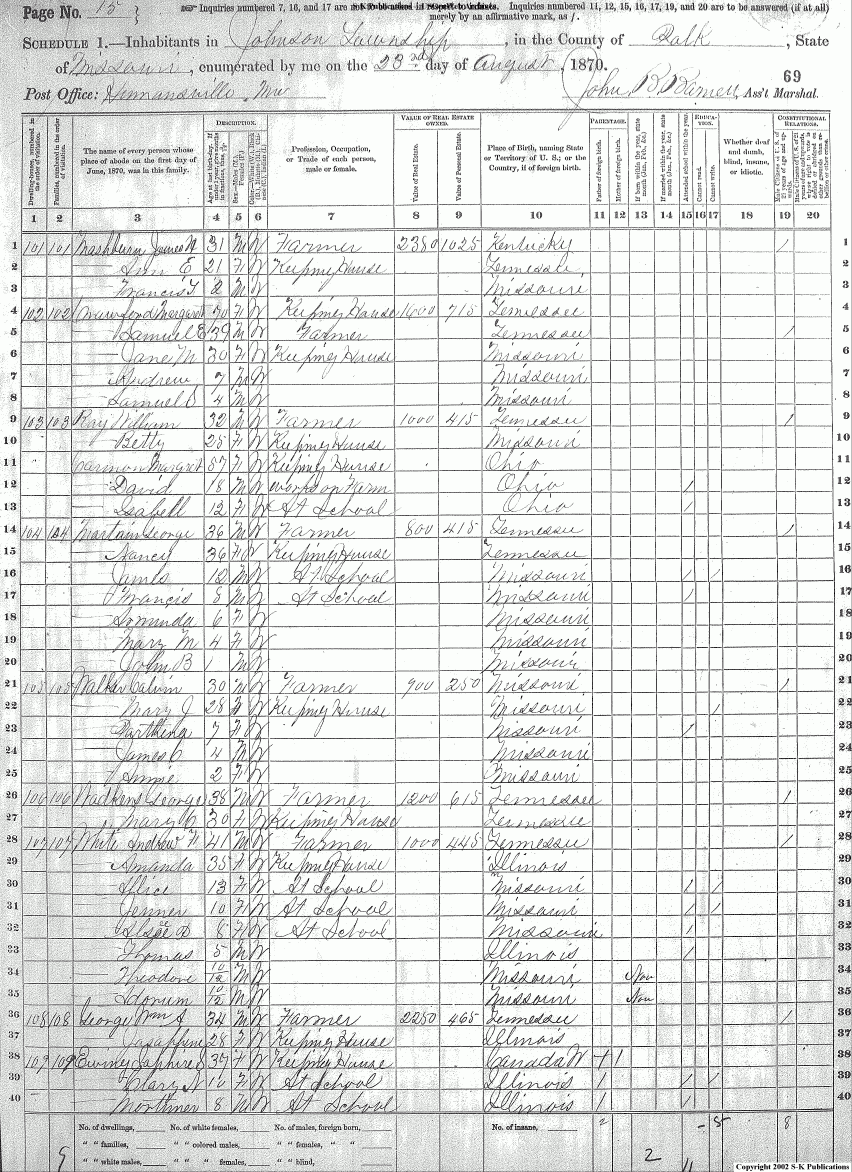 Page No. 15
Inquiries numbered 7, 16, and 17 are not to be asked in respect to infants. Inquiries numbered 11, 12, 15, 16, 17, 19, and 20 are to be answered (if at all) merely by an affirmative mark, as /.
SCHEDULE 1.—Inhabitants in Johnson Township, in the County of Polk, State
of Missouri, enumerated by me on the 23rd day of August, 1870.
69
Post Office: Humansville Mo
John B. Ass't Marshal.
DESCRIPTION. VALUE OF REAL ESTATE OWNED. PARENTAGE. EDUCATION. CONSTITUTIONAL RELATIONS.
Dwelling-houses, numbered in the order of visitation.
Families, numbered in the order of visitation.
The name of every person whose place of abode on the first day of June, 1870, was in this family.
Profession, Occupation, or Trade of each person, male or female.
Value of Real Estate.
Value of Personal Estate.
Place of Birth, naming State or Territory of U. S.; or the Country, if of foreign birth.
Father of foreign birth.
Mother of foreign birth.
Attended school within the year.
Cannot read.
Cannot write.
Whether deaf and dumb, blind, insane, or idiotic.
1 2 3 4 5 6 7 8 9 10 11 12 13 14 15 16 17 18 19 20
1 101 101 Mashburn James N 31 M W Farmer 2380 1025 Kentucky / 1
2 Ann E 21 F W Keeping House Tennessee 2
3 Francis T 2 M W Missouri 3
4 102 102 Crawford Margaret 70 F W Keeping House 1600 715 Tennessee 4
5 Samuel E 39 M W Farmer Tennessee / 5
6 Jane M 30 F W Keeping House Missouri 6
7 Andrew 7 M W Missouri 7
8 Samuel 4 M W Missouri 8
9 103 103 Ray William 32 M W Farmer 1000 415 Tennessee / 9
10 Betty 25 F W Keeping House Missouri 10
11 Carmon Margret 57 F W Keeping House Ohio 11
12 David 18 M W works on Farm Ohio / 12
13 Isabell 12 F W At School Ohio / 13
14 104 104 Martain George 36 M W Farmer 800 415 Tennessee / 14
15 Nancy 36 F W Keeping House Tennessee 15
16 James 12 M W At School Missouri / / 16
17 Francis 8 M W At School Missouri / 17
18 Arminda 6 F W Missouri 18
19 Mary M 4 F W Missouri 19
20 John B 1 M W Missouri 20
21 105 105 Walker Calvin 30 M W Farmer 900 250 Missouri / 21
22 Mary J 28 F W Keeping House Missouri / 22
23 Parthena 7 F W Missouri / 23
24 James C 4 M W Missouri 24
25 Annie 2 F W Missouri 25
26 106 106 Wadkens George 38 M W Farmer 1200 615 Tennessee / 26
27 Mary C 30 F W Keeping House Tennessee 27
28 107 107 White Andrew F 41 M W Farmer 1000 445 Tennessee / 28
29 Amanda 35 F W Keeping House Illinois 29
30 Ellice 13 F W At School Missouri / / 30
31 Jenner 10 F W At School Missouri / / 31
32 8 F W At School Missouri / 32
33 Thomas 5 M W Illinois / 33
34 Theodore 10/12 M W Missouri Nov 34
35 Adorum 10/12 M W Missouri Nov 35
36 108 108 George Wm A 34 M W Farmer 2250 465 Tennessee / 36
37 Josaphine 28 F W Keeping House Illinois 37
38 109 109 Saphire 37 F W Keeping House Canada W / / 38
39 Clary N 10 F W At School Illinois / / / 39
40 Mortimer 8 M W At School Illinois / / 40
No. of dwellings, No. of white females, No. of males, foreign born, No. of insane, 2 - 8 8
" " families, " " colored males, " " females, " "
9 " " white males, " " " females, " " blind, 2 11
Copyright 2002 S-K Publications